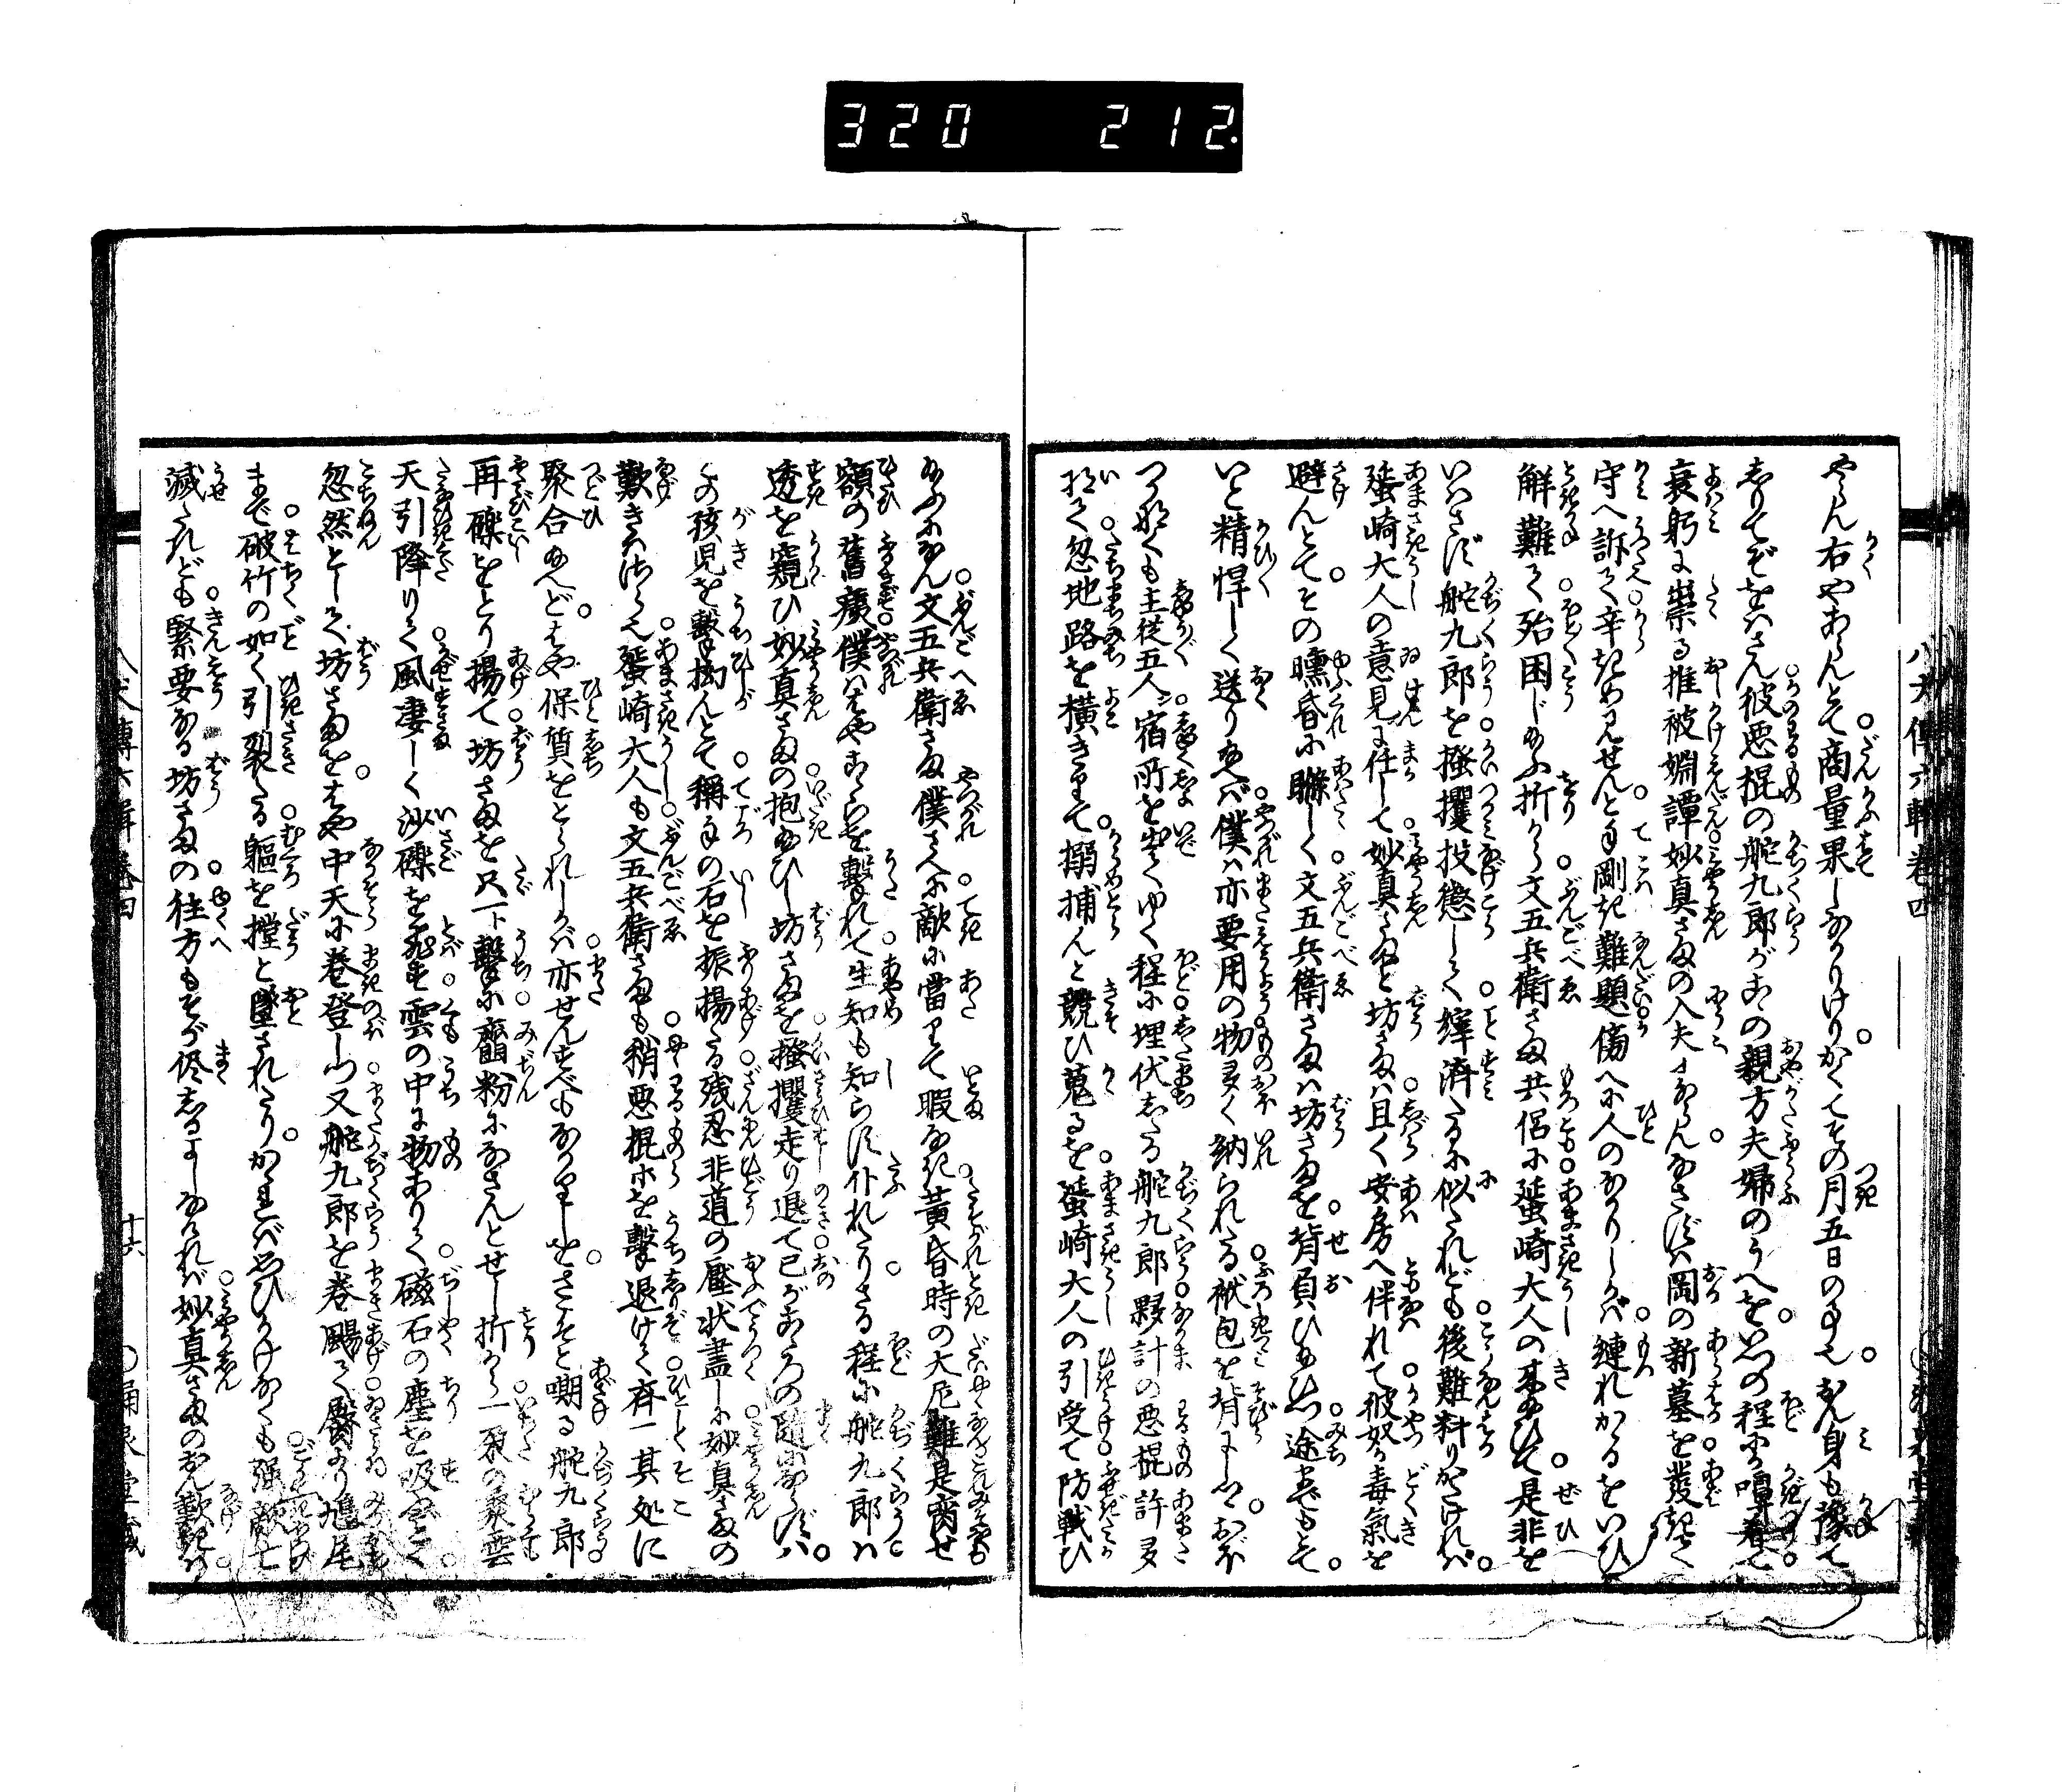 320 212.
八犬傳六輯巻四
やらん右やあらんとて商量果しなかりけり。かくてその月五日の事也。おん身も豫て
しりてぞをはさん彼悪棍の舵九郎がこの親方夫婦のうへを。思ふ程の噂着て
衰躬に祟る推被婣譚妙真さまの入夫にならん。なさずは岡の新墓を發起て
守へ訴て辛きめ見せんと手剛き難題傍へに人のなかりしかば縺れかるをいひ
解難て殆困じ給ふ折から文五兵衛さま共侶に蜑崎大人の来給ひて。是非を
いはさず舵九郎を掻攫投懲して縡済たるに似たれども後難料りがたければ。
蜑崎大人の意見に任して妙真さまと坊さまは且く安房へ伴れて彼奴が毒氣を
避んとて。その曛昏に聯しく文五兵衛さまは坊さまを背負ひ給ひつ途までもとて。
いと精悍しく送り給へば僕は亦要用の物多く納られたる袱包を背に
つ都も主従五人宿所を出てゆく程に埋伏したる舵九郎夥計の悪棍許多
に忽地路を横きりて搦捕んと競ひ蒐るを蜑崎大人の引受て防戦ひ
給ふになん文五兵衛さま僕さへに敵に當りて暇なき黄昏時の大厄難是齊せ
額の舊痍僕ははやあらを撃れて生知も知らず仆れたりさる程に舵九郎は
透を窺ひ妙真さまの抱給ひし坊さまを掻攫走り退て已がまゝの随ならずは。
この孩児を撃拗んとて稱手の石を振揚たる残忍非道の壓状盡しに妙真さまの
歎きはさら也蜑崎大人も文五兵衛さまも稍悪棍等を撃退けて齊一其処に
聚合給へど。はや保質をとられしかば亦せんすべもなかりしを。さこそと嘲る舵九郎
再礫をとり揚て坊さまを只一ト撃に齏粉になさんとせし折から一朶の叢雲
天引降りて風凄しく沙礫を飛し雲の中に物ありて磁石の塵を吸ふごとく
忽然として坊さまを。はや中天に巻登しつ又舵九郎を巻颺て臀より鳩尾
まで破竹の如く引裂たる軀を撲と墜されたり。かゝれば思ひかけなくも強敵亡
滅たれども緊要なる坊さまの往方もそが侭しるよしなければ妙真さまのおん歎きは。
八犬傳六輯巻四
十六
○涌泉堂藏